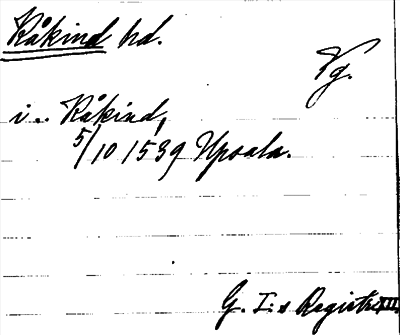 Kåkind hd.
Vg.
i.. Kåkind,
5/10 1539 Upsala.
G. I:s Registr. XII.